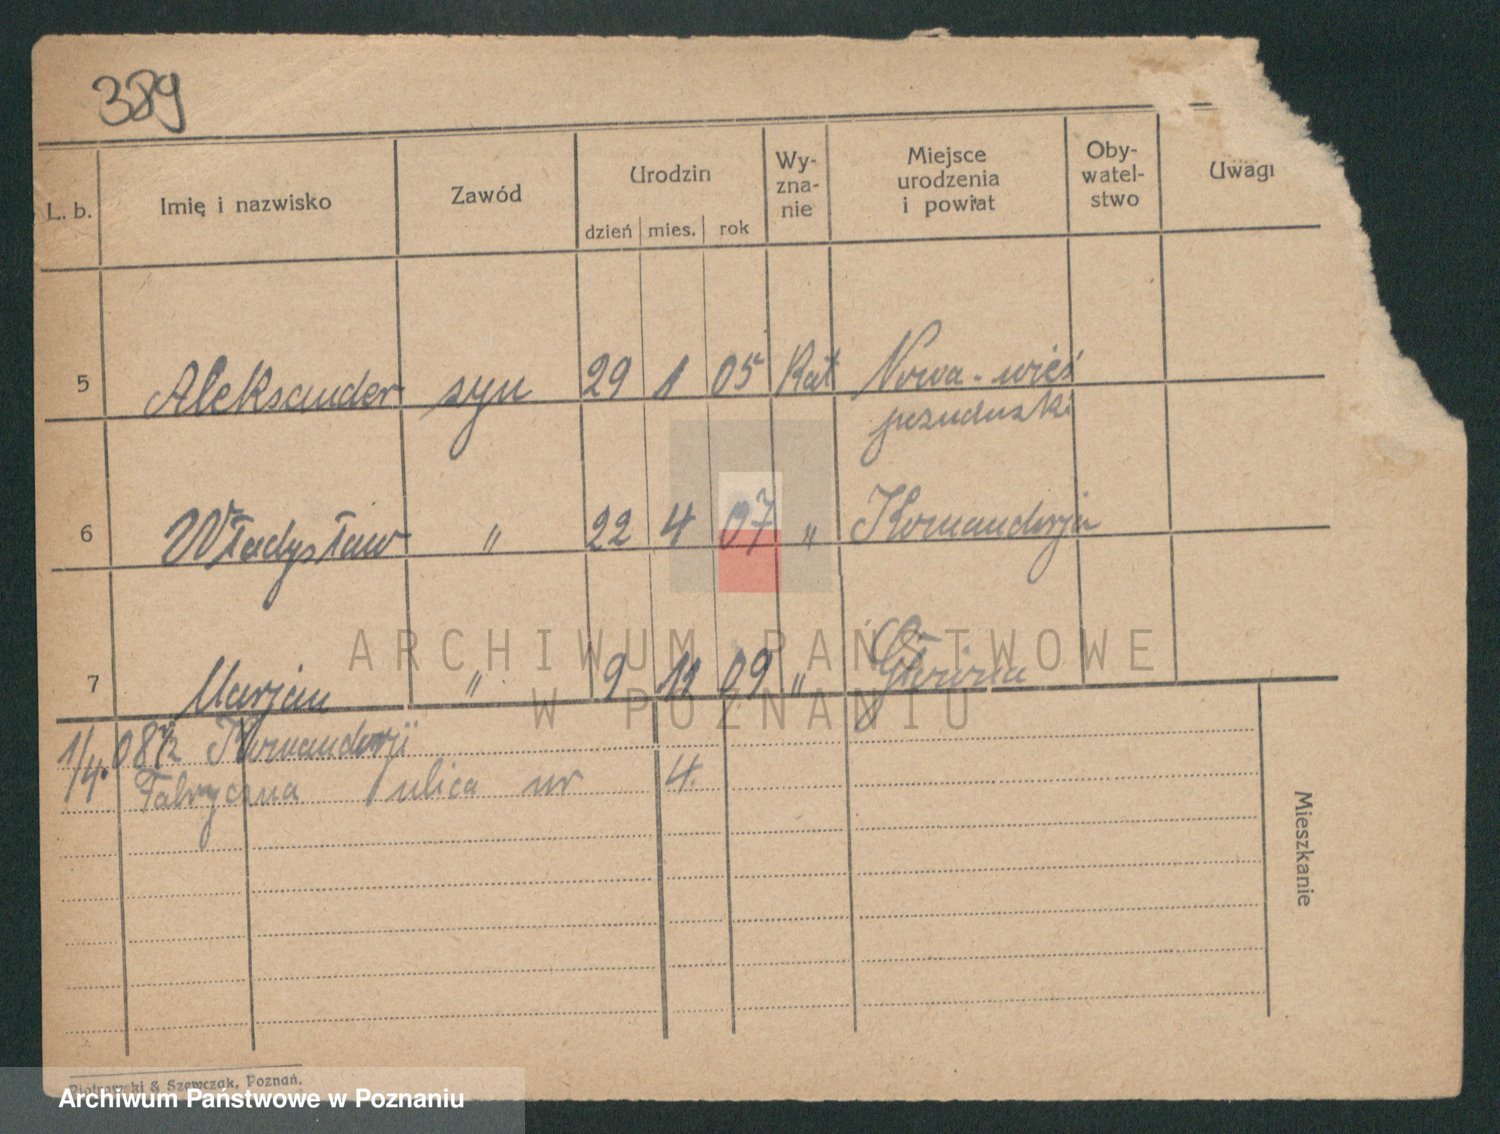 389
L. b. Imię i nazwisko Zawód Urodzin dzień mies. rok Wy-zna-nie Miejsce urodzenia i powiat Oby-watel-stwo Uwagi
5 Aleksander syn 29 1 05 Kat Nowa-wieś
6 Władysław " 22 4 07 " Komandorja
7 Marjan " 9 12 09 " Główna
1/4. 08 Komandorji
Fabryczna ulica nr 4.
Mieszkanie
Piotrowski & Szewczak, Poznań.
ARCHIWUM PAŃSTWOWE
W POZNANIU
Archiwum Państwowe w Poznaniu